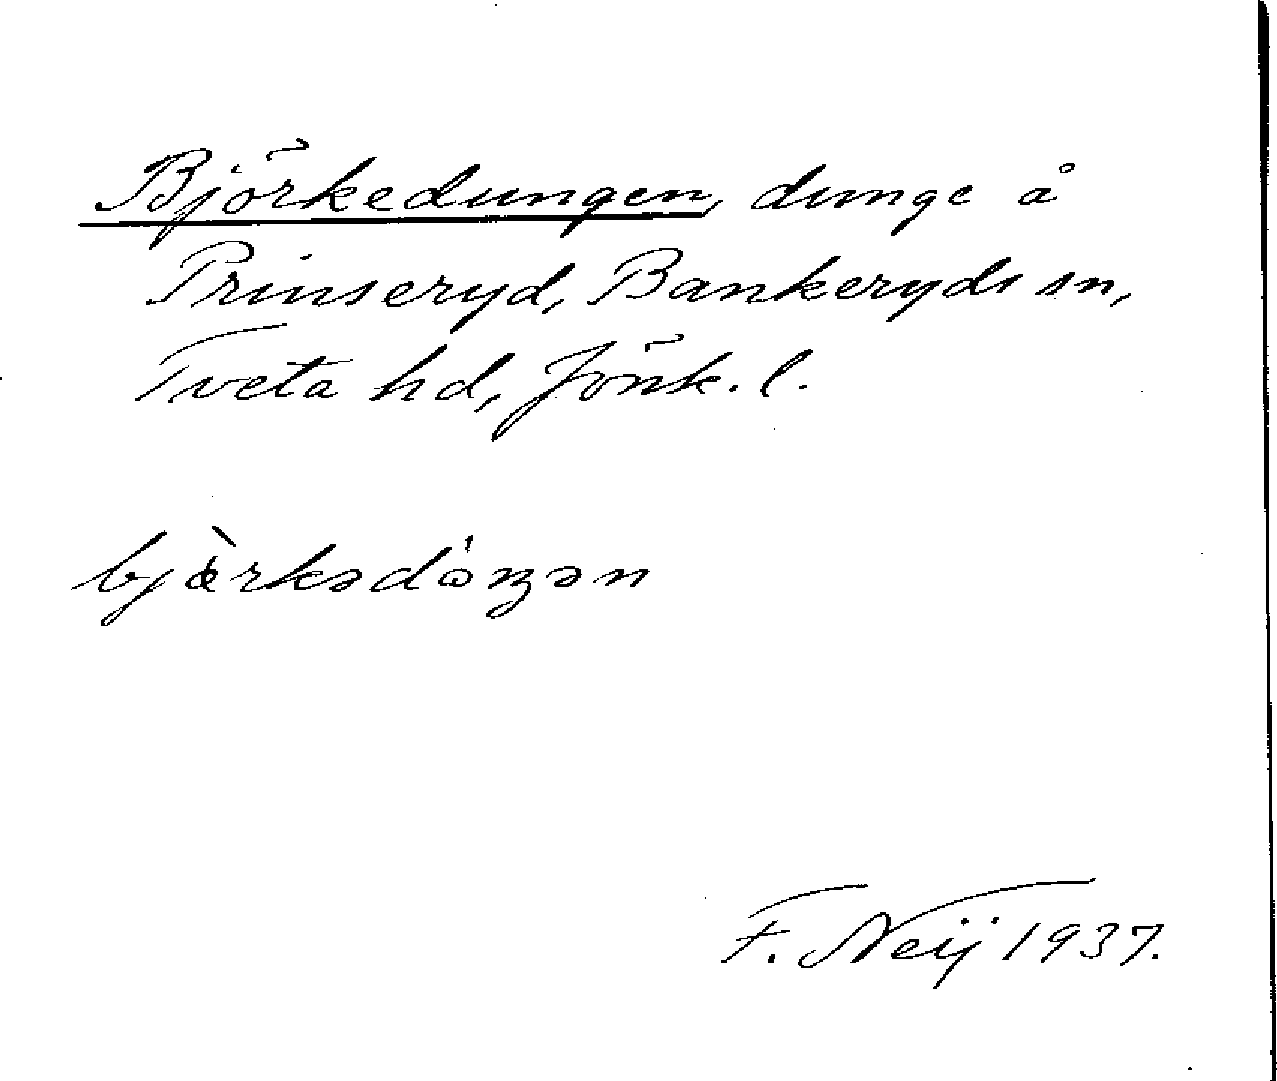 Björkedungen, dunge å
Prinseryd, Bankeryds sn,
Tveta hd, Jönk. l.
bjæ̀rkədɷ́ŋən
F. Neij 1937.